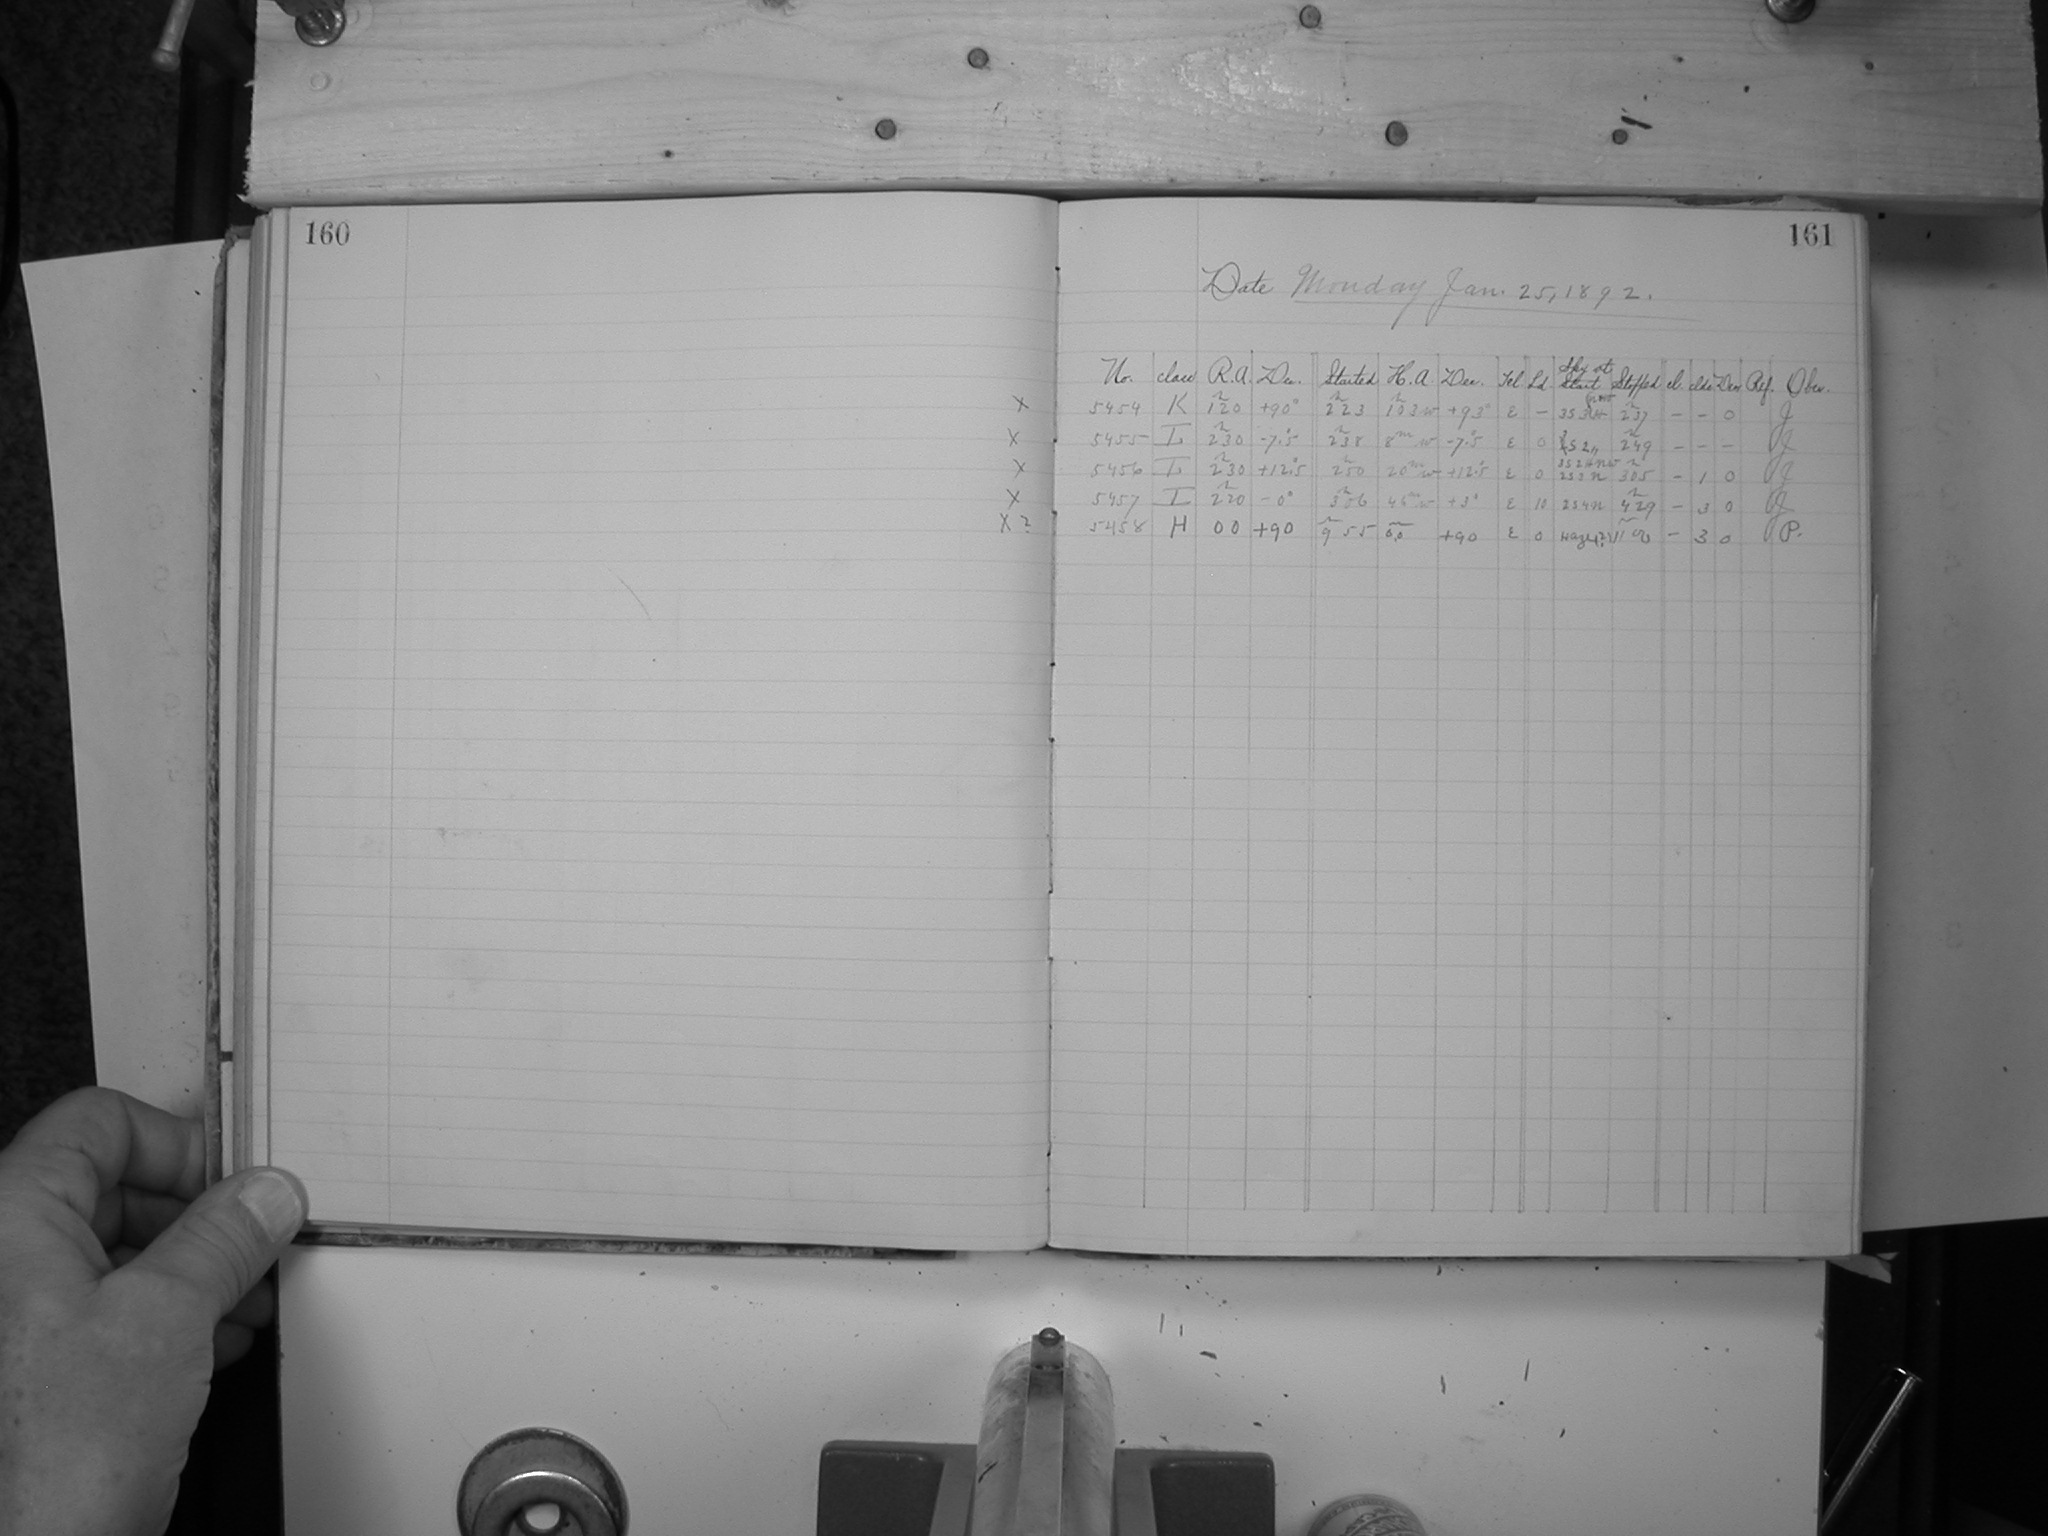 160
161
Date Monday Jan. 25, 1892.
No. class R.A. Dec. Started H.A. Dec. Tel Ld Sky at Start Stopped cl. clds Dew Ref. Obsr.
X 5454 K 1h20 +90° 2h23 1h03w +93° E - 2h37 - - 0 J
X 5455 L 2h30 -7.°5 2h38 8m w -7.°5 E 0 2h49 - - - J
X 5456 L 2h30 +12.°5 2h50 20m w +12.°5 E 0 3h05 - 1 0 J
X 5457 I 2h20 - 0° 3h06 46m w +3° E 10 254n 4h29 - 3 0 J
X? 5458 H 00 +90 9h55 +90 E 0 - 3 0 P.